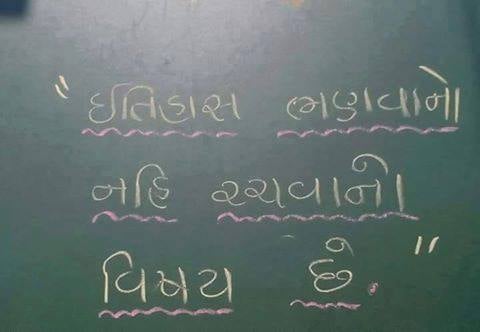 “ ઈતિહાસ ભણવાનો
નહિ રચવાનો
વિષય છે. ”